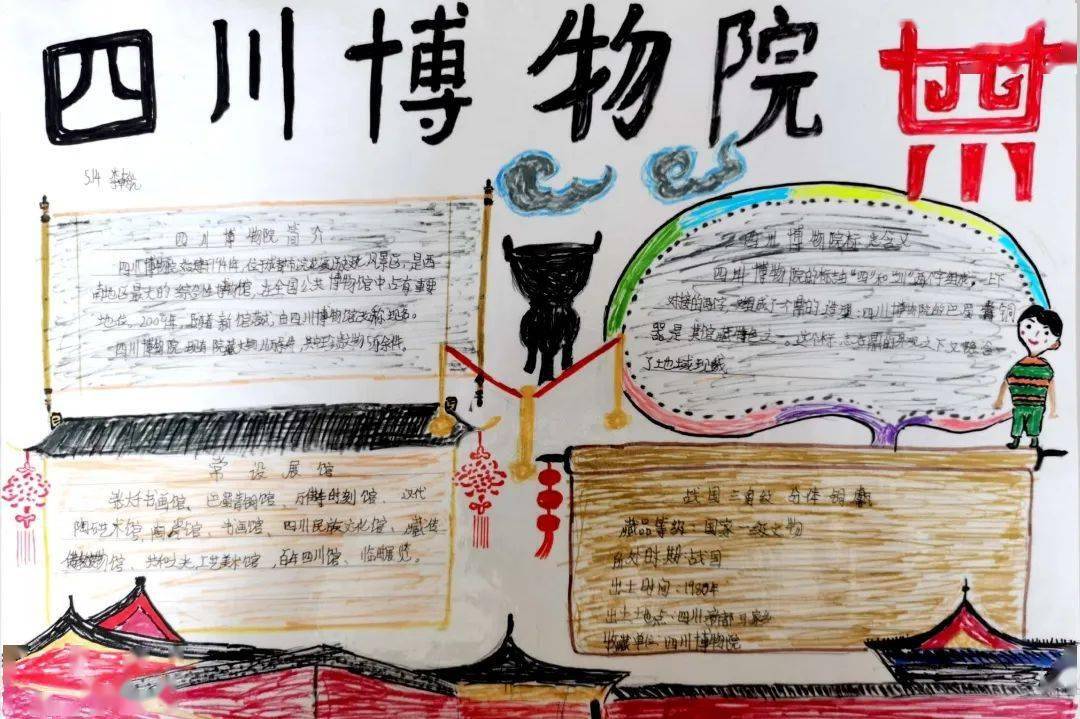 四川博物院
5.14 李
四川博物院简介
四川博物院 位于成都市浣花溪历史文化风景区,是西
南地区最大的综合性博物馆,在全国公共博物馆中占有重要
地位。2009年, 新馆 ,由四川博物馆 称 。
四川博物院现有院藏文物 万余件, 余件。
常设展馆
张大千书画馆、巴蜀青铜馆、万佛寺石刻馆、汉代
陶石艺术馆、陶瓷馆、书画馆、四川民族文化馆、藏传
佛教文物馆、 工艺美术馆、百年四川馆、临时展览。
四川博物院标志含义
四川博物院的标志由“四”和“川”两个字组成,上下
对接的两字,组成了个鼎的造型;四川博物院的巴蜀青铜
器是其馆藏特色之一,这个标志在鼎的 之下又整合
了地域
战国三角纹分体铜甗
藏品等级:国家一级文物
所处时期:战国
出土时间:1980年
出土地点:四川新都马家乡
收藏单位:四川博物院